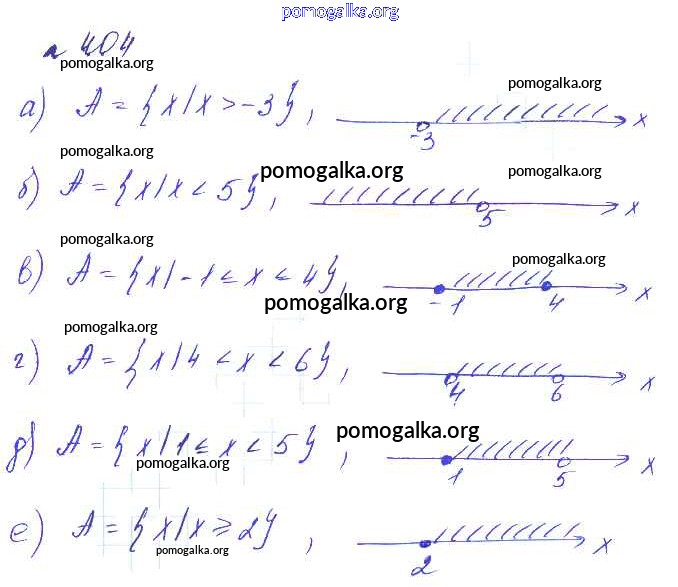 pomogalka.org
№ 404
pomogalka.org pomogalka.org
а) A = {x/x > -3}, -3 x
pomogalka.org pomogalka.org pomogalka.org
б) A = {x/x < 5}, 5 x
pomogalka.org pomogalka.org
в) A = {x/-1 ≤ x < 4}, -1 4 x
pomogalka.org pomogalka.org
г) A = {x/4 < x < 6}, 4 6 x
pomogalka.org
д) A = {x/1 ≤ x < 5}, 1 5 x
pomogalka.org
е) A = {x/x ≥ 2}, 2 x
pomogalka.org